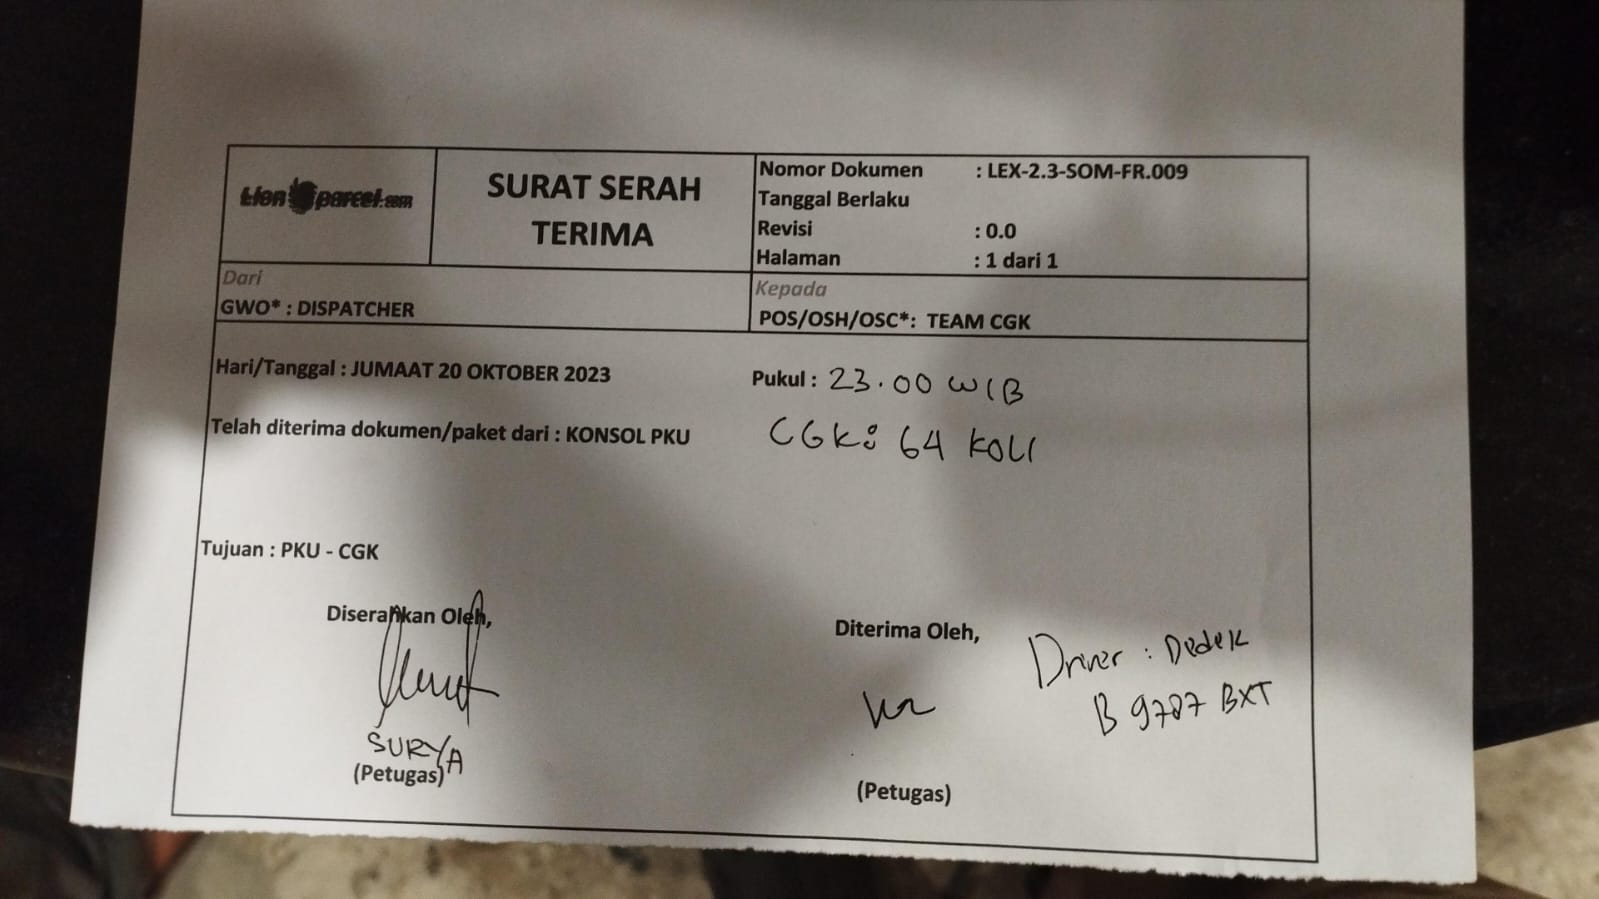 Lion parcel.com
SURAT SERAH
TERIMA
Nomor Dokumen : LEX-2.3-SOM-FR.009
Tanggal Berlaku
Revisi : 0.0
Halaman : 1 dari 1
Dari
GWO* : DISPATCHER
Kepada
POS/OSH/OSC*: TEAM CGK
Hari/Tanggal : JUMAAT 20 OKTOBER 2023
Pukul : 23.00 WIB
Telah diterima dokumen/paket dari : KONSOL PKU
CGK: 64 KOLI
Tujuan : PKU - CGK
Diserahkan Oleh,
SURYA
(Petugas)
Diterima Oleh,
Driver : Dedek
B 9787 BXT
(Petugas)